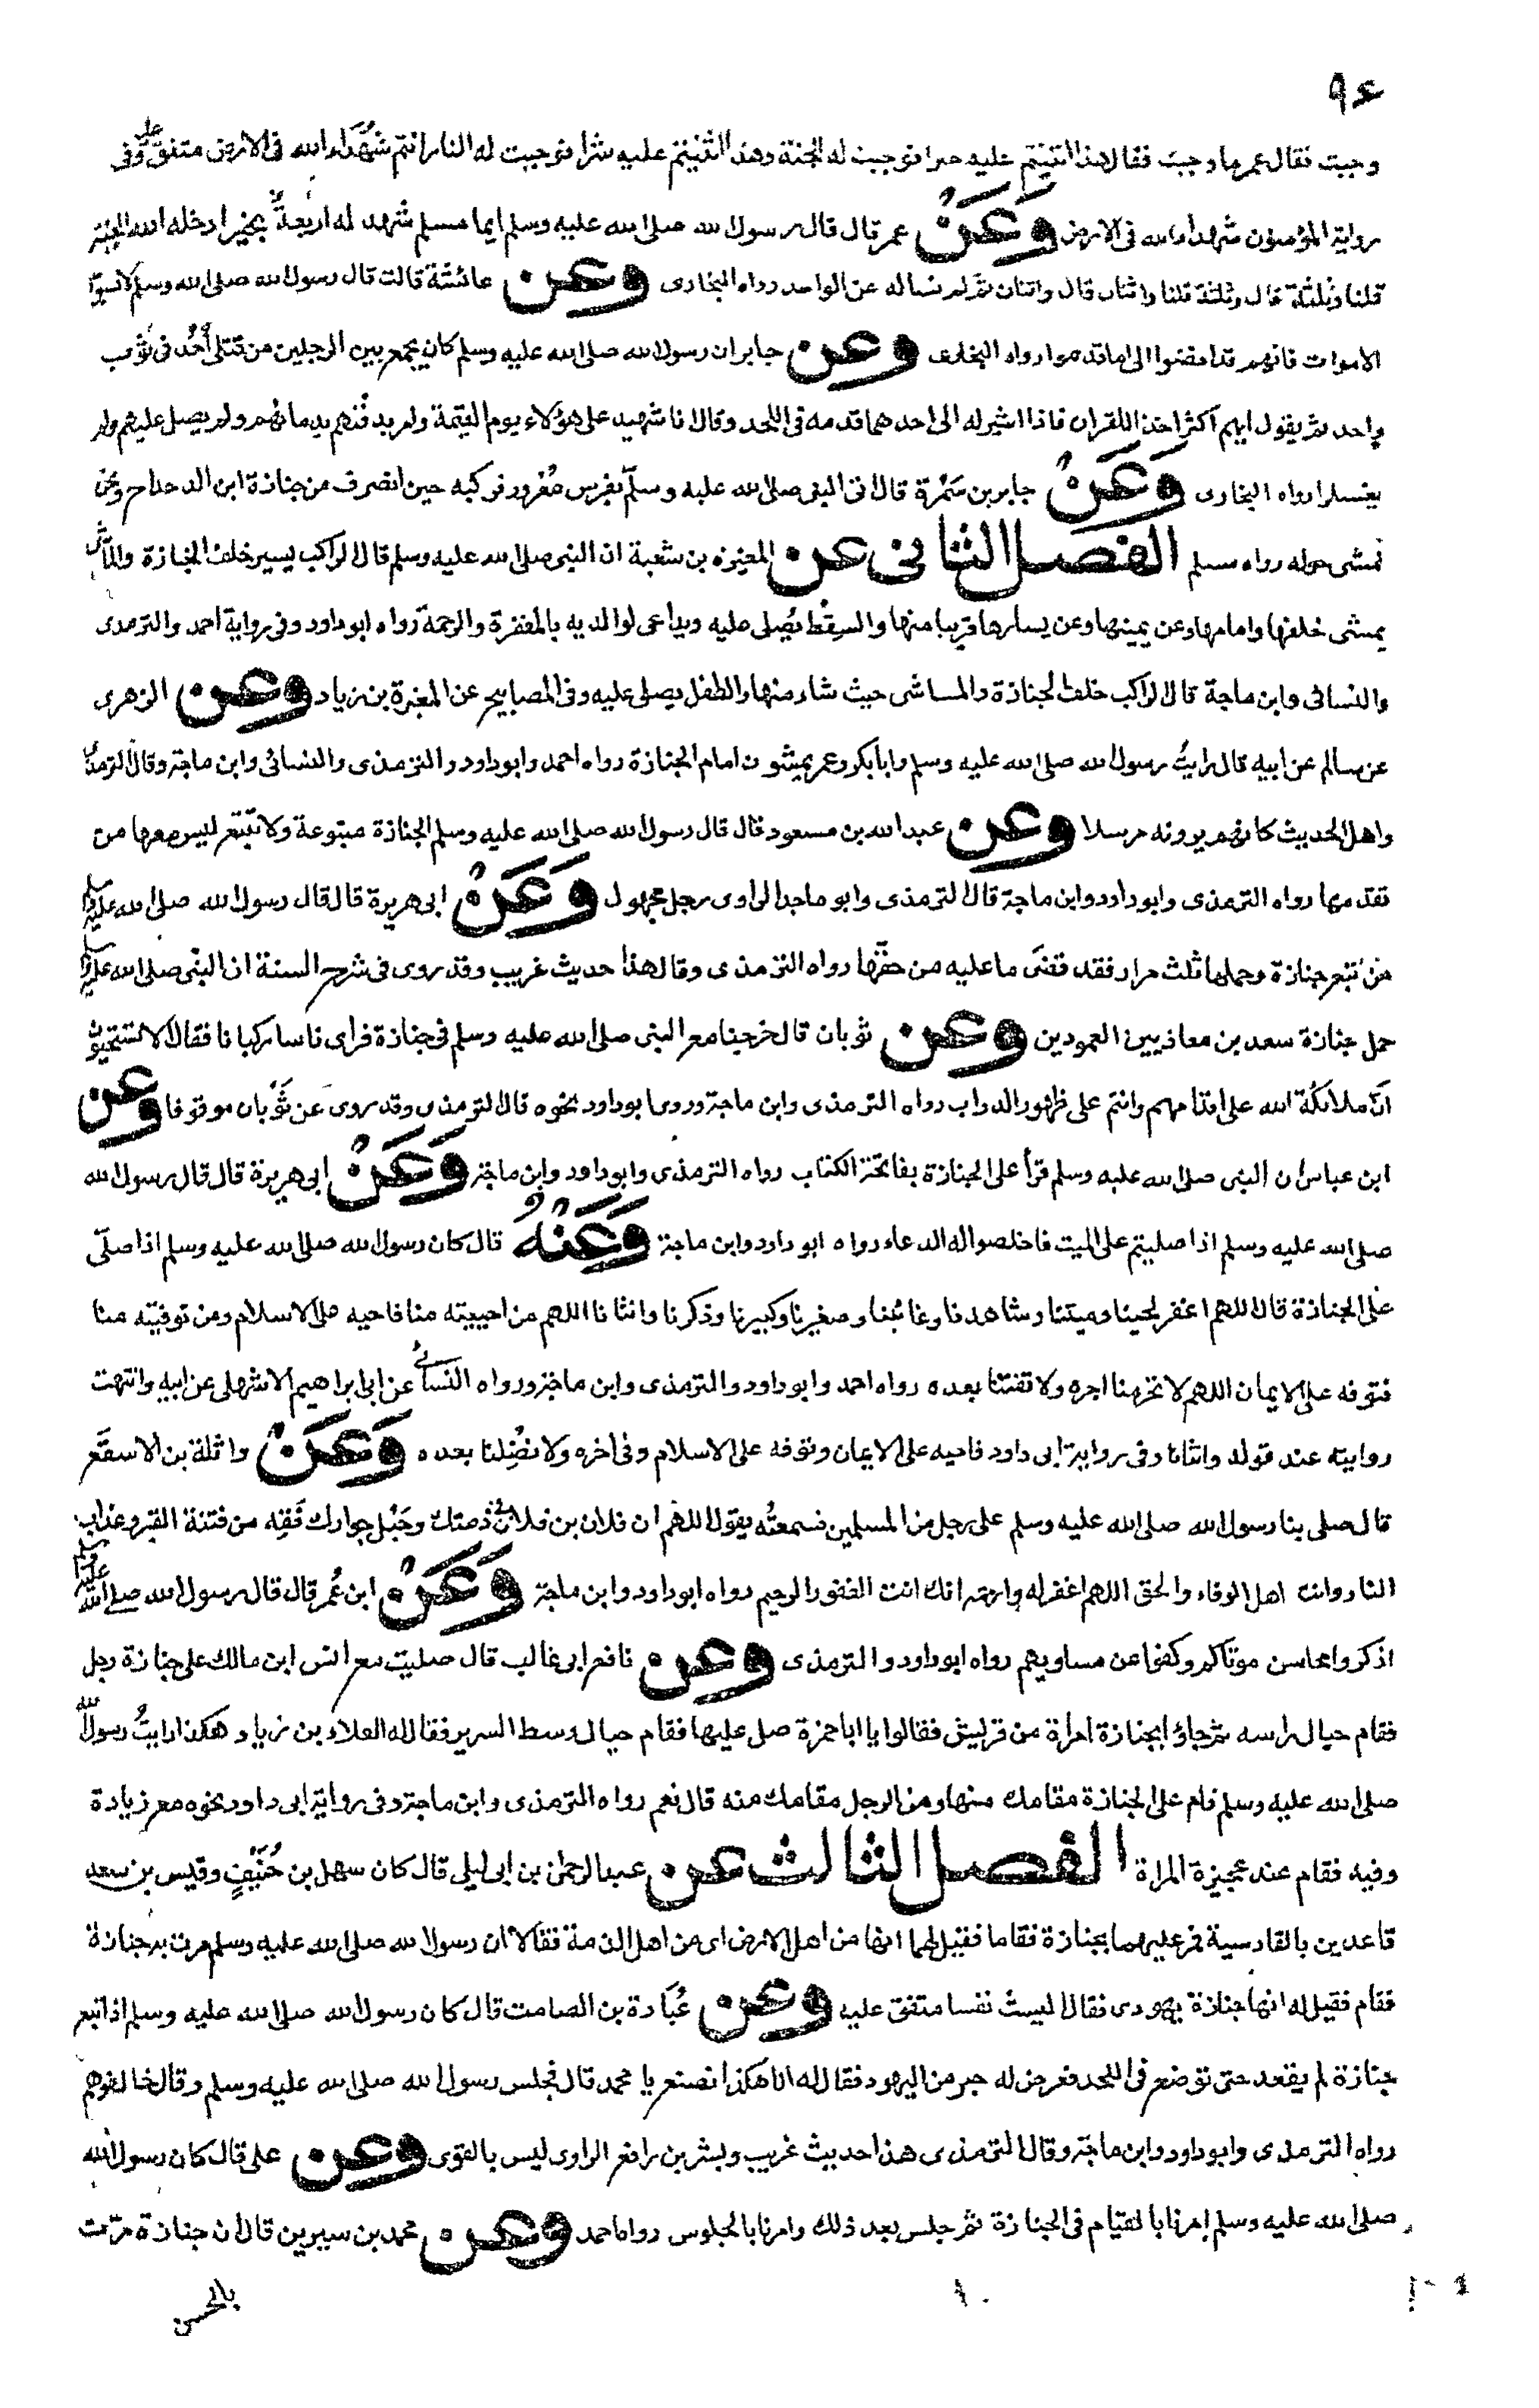 ٩٤
وجبت فقال عمر ما وجبت فقال هذا اثنيتم عليه خيرا فوجبت له الجنة وهذا اثنيتم عليه شرا فوجبت له النار انتم شهداء الله في الارض متفق عليه وفي
رواية المؤمنون شهداء الله في الارض وعن عمر قال قال رسول الله صلى الله عليه وسلم ايما مسلم شهد له اربعة بخير ادخله الله الجنة
قلنا وثلثة قال وثلثة قلنا واثنان قال واثنان ثم لم نساله عن الواحد رواه البخاري وعن عائشة قالت قال رسول الله صلى الله وسلم لا تسبوا
الاموات فانهم قد افضوا الى ما قدموا رواه البخاري وعن جابر ان رسول الله صلى الله عليه وسلم كان يجمع بين الرجلين من قتلى أحد في ثوب
واحد ثم يقول ايهم اكثر اخذا للقران فاذا اشير له الى احدهما قدمه في اللحد وقال انا شهيد على هؤلاء يوم القيمة وامر بدفنهم بدمائهم ولم يصل عليهم ولم
يغسلوا رواه البخاري وعن جابر بن سمرة قال اتي النبي صلى الله عليه وسلم بفرس معرور فركبه حين انصرف من جنازة ابن الدحداح ونحن
نمشي حوله رواه مسلم الفصل الثاني عن المغيرة بن شعبة ان النبي صلى الله عليه وسلم قال الراكب يسير خلف الجنازة والماشي
يمشي خلفها وامامها وعن يمينها وعن يسارها قريبا منها والسقط يصلى عليه ويدعى لوالديه بالمغفرة والرحمة رواه ابو داود وفي رواية احمد والترمذي
والنسائي وابن ماجة قال الراكب خلف الجنازة والماشي حيث شاء منها والطفل يصلى عليه وفي المصابيح عن المغيرة بن زياد وعن الزهري
عن سالم عن ابيه قال رايت رسول الله صلى الله عليه وسلم وابا بكر وعمر يمشون امام الجنازة رواه احمد وابو داود والترمذي والنسائي وابن ماجة وقال الترمذي
واهل الحديث كانهم يرونه مرسلا وعن عبد الله بن مسعود قال قال رسول الله صلى الله عليه وسلم الجنازة متبوعة ولا تتبع ليس معها من
تقدمها رواه الترمذي وابو داود وابن ماجة قال الترمذي وابو ماجد الراوي رجل مجهول وعن ابي هريرة قال قال رسول الله صلى الله عليه وسلم
من تبع جنازة وحملها ثلث مرار فقد قضى ما عليه من حقها رواه الترمذي وقال هذا حديث غريب وقد روى في شرح السنة ان النبي صلى الله عليه وسلم
حمل جنازة سعد بن معاذ بين العمودين وعن ثوبان قال خرجنا مع النبي صلى الله عليه وسلم في جنازة فراى ناسا ركبانا فقال الا تستحيون
ان ملائكة الله على اقدامهم وانتم على ظهور الدواب رواه الترمذي وابن ماجة وروى ابو داود نحوه قال الترمذي وقد روي عن ثوبان موقوفا وعن
ابن عباس ان النبي صلى الله عليه وسلم قرأ على الجنازة بفاتحة الكتاب رواه الترمذي وابو داود وابن ماجة وعن ابي هريرة قال قال رسول الله
صلى الله عليه وسلم اذا صليتم على الميت فاخلصوا له الدعاء رواه ابو داود وابن ماجة وعنه قال كان رسول الله صلى الله عليه وسلم اذا صلى
على الجنازة قال اللهم اغفر لحينا وميتنا وشاهدنا وغائبنا وصغيرنا وكبيرنا وذكرنا وانثانا اللهم من احييته منا فاحيه على الاسلام ومن توفيته منا
فتوفه على الايمان اللهم لا تحرمنا اجره ولا تفتنا بعده رواه احمد وابو داود والترمذي وابن ماجة ورواه النسائي عن ابي ابراهيم الاشهلي عن ابيه وانتهت
روايته عند قوله وانثانا وفي رواية ابي داود فاحيه على الايمان وتوفه على الاسلام وفي اخره ولا تضلنا بعده وعن واثلة بن الاسقع
قال صلى بنا رسول الله صلى الله عليه وسلم على رجل من المسلمين فسمعته يقول اللهم ان فلان بن فلان في ذمتك وحبل جوارك فقه من فتنة القبر وعذاب
النار وانت اهل الوفاء والحق اللهم اغفر له وارحمه انك انت الغفور الرحيم رواه ابو داود وابن ماجة وعن ابن عمر قال قال رسول الله صلى الله عليه وسلم
اذكروا محاسن موتاكم وكفوا عن مساويهم رواه ابو داود والترمذي وعن نافع ابي غالب قال صليت مع انس ابن مالك على جنازة رجل
فقام حيال راسه ثم جاؤا بجنازة امراة من قريش فقالوا يا ابا حمزة صل عليها فقام حيال وسط السرير فقال له العلاء بن زياد هكذا رايت رسول الله
صلى الله عليه وسلم قام على الجنازة مقامك منها ومن الرجل مقامك منه قال نعم رواه الترمذي وابن ماجة وفي رواية ابي داود نحوه مع زيادة
وفيه فقام عند عجيزة المراة الفصل الثالث عن عبد الرحمن بن ابي ليلى قال كان سهل بن حنيف وقيس بن سعد
قاعدين بالقادسية فمر عليهما بجنازة فقاما فقيل لهما انها من اهل الارض اي من اهل الذمة فقالا ان رسول الله صلى الله عليه وسلم مرت به جنازة
فقام فقيل له انها جنازة يهودي فقال اليست نفسا متفق عليه وعن عبادة بن الصامت قال كان رسول الله صلى الله عليه وسلم اذا تبع
جنازة لم يقعد حتى توضع في اللحد فعرض له حبر من اليهود فقال له انا هكذا نصنع يا محمد قال فجلس رسول الله صلى الله عليه وسلم وقال خالفوهم
رواه الترمذي وابو داود وابن ماجة وقال الترمذي هذا حديث غريب وبشر بن رافع الراوي ليس بالقوى وعن علي قال كان رسول الله
صلى الله عليه وسلم امرنا بالقيام في الجنازة ثم جلس بعد ذلك وامرنا بالجلوس رواه احمد وعن محمد بن سيرين قال ان جنازة مرت
بالحسن